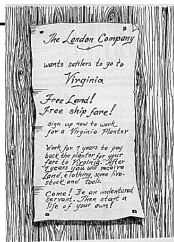 The London Company
wants settlers to go to
Virginia
Free Land!
Free ship fare!
Sign up now to work
for a Virginia Planter
Work for 7 years to pay
back the planter for your
fare to Virginia. After
7 years you will receive
land, clothing, some live-
stock, and tools.
Come! Be an indentured
servant. Then start a
life of your own!